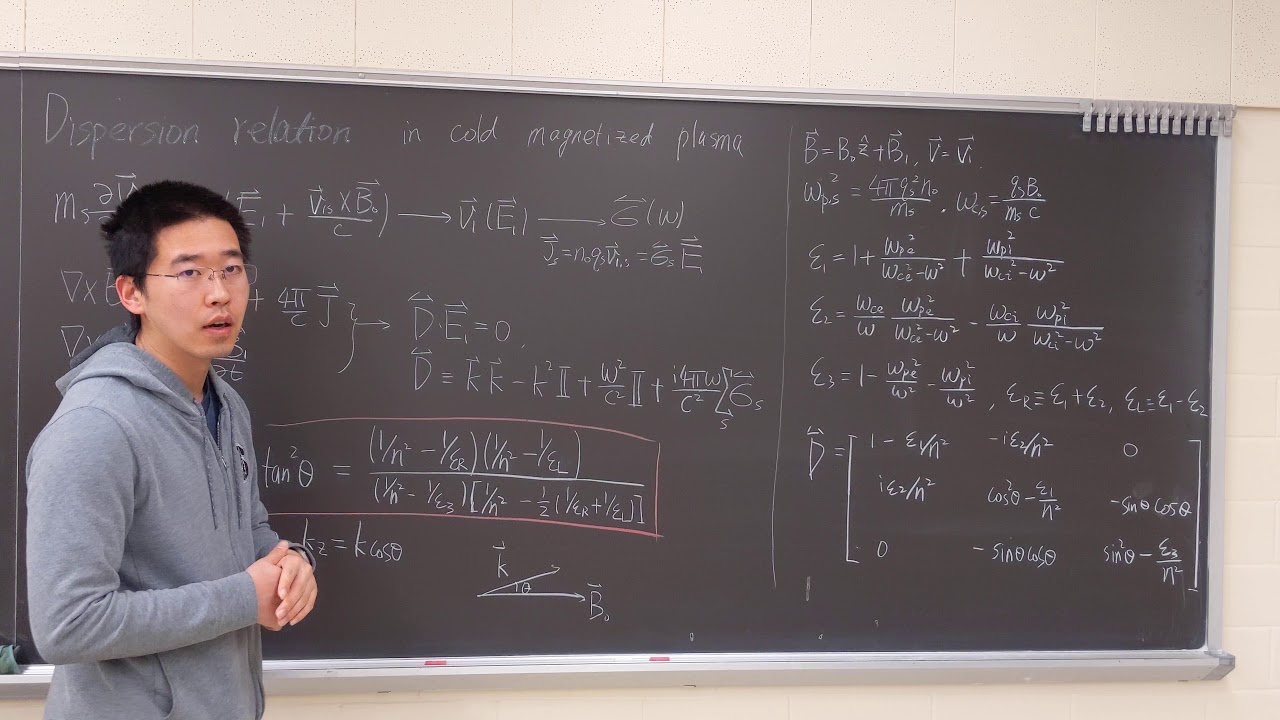 Dispersion relation in cold magnetized plasma
m_s ∂v⃗ (E⃗₁ + (v⃗₁ₛ × B⃗₀)/c) → v⃗₁(E⃗₁) → σ⃡(ω)
J⃗ₛ = n₀qₛv⃗₁,ₛ = σ⃡ₛ E⃗
∇×B + 4π/c J⃗ } → D⃡·E⃗₁ = 0,
∇× ∂t
D⃡ ≡ k⃗k⃗ − k²𝕀 + ω²/c² 𝕀 + i4πω/c² Σₛ σ⃡ₛ
tan²θ = (1/n² − 1/ε_R)(1/n² − 1/ε_L) / (1/n² − 1/ε₃)[1/n² − ½(1/ε_R + 1/ε_L)]
k_z = k cosθ
k⃗
θ
B⃗₀
B⃗ = B₀ẑ + B⃗₁, v⃗ = v⃗₁
ω_ps² = 4πqₛ²n₀/mₛ, ω_cs = qₛB₀/mₛc
ε₁ = 1 + ω_pe²/(ω_ce² − ω²) + ω_pi²/(ω_ci² − ω²)
ε₂ = ω_ce/ω ω_pe²/(ω_ce² − ω²) − ω_ci/ω ω_pi²/(ω_ci² − ω²)
ε₃ = 1 − ω_pe²/ω² − ω_pi²/ω², ε_R ≡ ε₁ + ε₂, ε_L ≡ ε₁ − ε₂
D⃡ = [ 1 − ε₁/n² −iε₂/n² 0
iε₂/n² cos²θ − ε₁/n² −sinθ cosθ
0 −sinθcosθ sin²θ − ε₃/n² ]